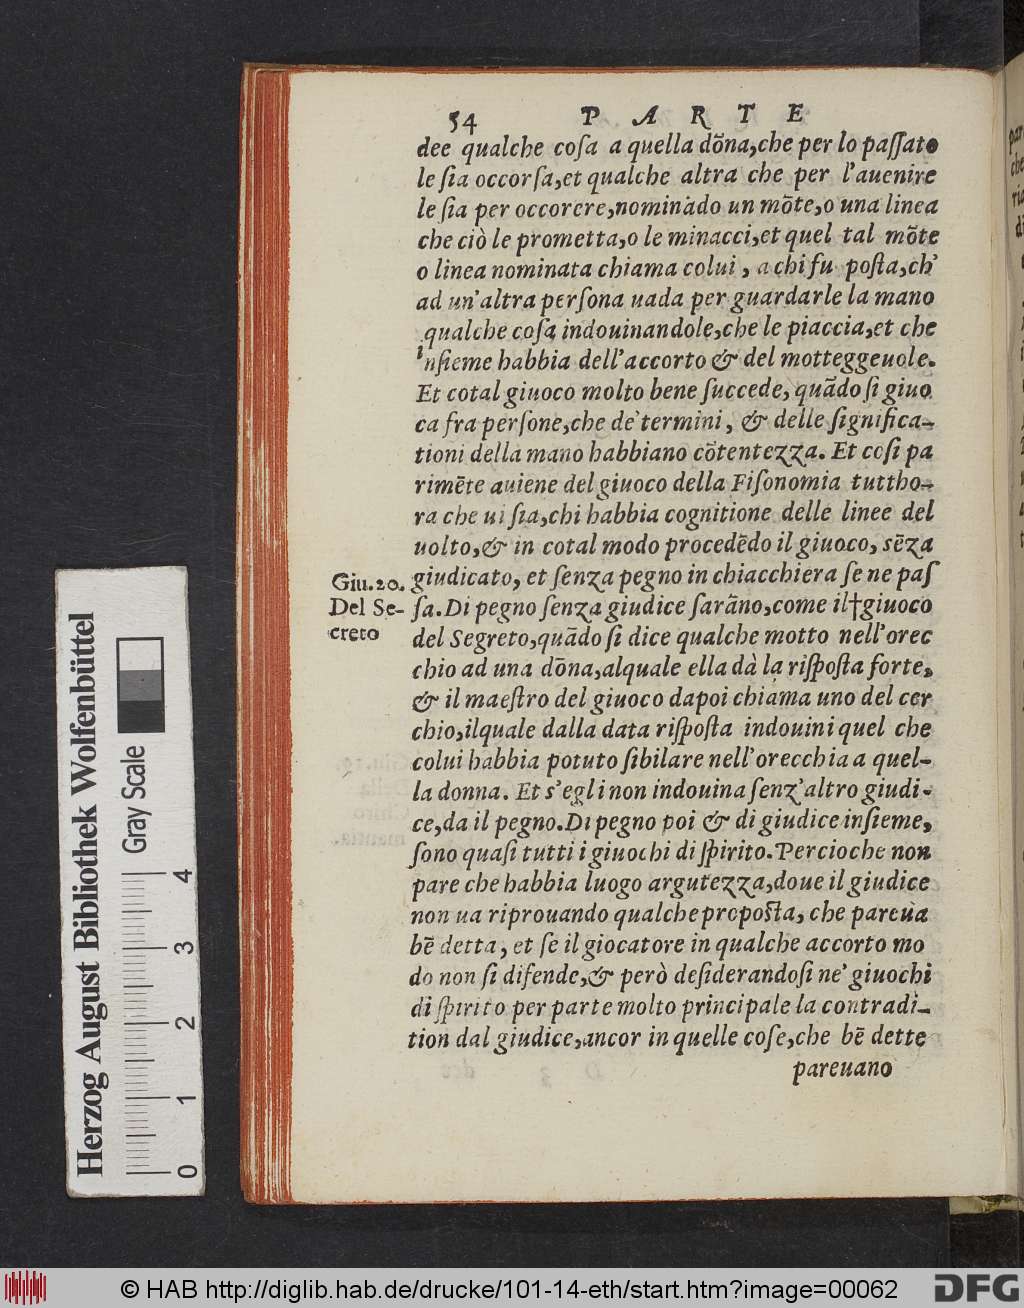 54 PARTE
dee qualche coſa a quella dõna,che per lo paſſato
le ſia occorſa,et qualche altra che per l'auenire
le ſia per occorere,nominãdo un mõte,o una linea
che ciò le prometta,o le minacci,et quel tal mõte
o linea nominata chiama colui, a chi fu poſta,ch'
ad un'altra perſona uada per guardarle la mano
qualche coſa indouinandole,che le piaccia,et che
inſieme habbia dell'accorto & del motteggeuole.
Et cotal giuoco molto bene ſuccede, quãdo ſi giuo
ca fra perſone,che de' termini, & delle ſignifica-
tioni della mano habbiano cõtentezza. Et coſi pa
rimẽte auiene del giuoco della Fiſonomia tuttho-
ra che ui ſia,chi habbia cognitione delle linee del
uolto,& in cotal modo procedẽdo il giuoco, ſẽza
giudicato, et ſenza pegno in chiacchiera ſe ne paſ
Giu.20.
Del Se-
creto
ſa. Di pegno ſenza giudice ſarãno,come il†giuoco
del Segreto,quãdo ſi dice qualche motto nell'orec
chio ad una dõna,alquale ella dà la riſpoſta forte,
& il maeſtro del giuoco dapoi chiama uno del cer
chio,ilquale dalla data riſpoſta indouini quel che
colui habbia potuto ſibilare nell'orecchia a quel-
la donna. Et s'egli non indouina ſenz'altro giudi-
ce,da il pegno.Di pegno poi & di giudice inſieme,
ſono quaſi tutti i giuochi di ſpirito.Percioche non
pare che habbia luogo argutezza,doue il giudice
non ua riprouando qualche propoſta, che pareua
bẽ detta, et ſe il giocatore in qualche accorto mo
do non ſi difende,& però deſiderandoſi ne' giuochi
di ſpirito per parte molto principale la contradi-
tion dal giudice,ancor in quelle coſe,che bẽ dette
pareuano
Herzog August Bibliothek Wolfenbüttel
Gray Scale
0 1 2 3 4
© HAB http://diglib.hab.de/drucke/101-14-eth/start.htm?image=00062
DFG